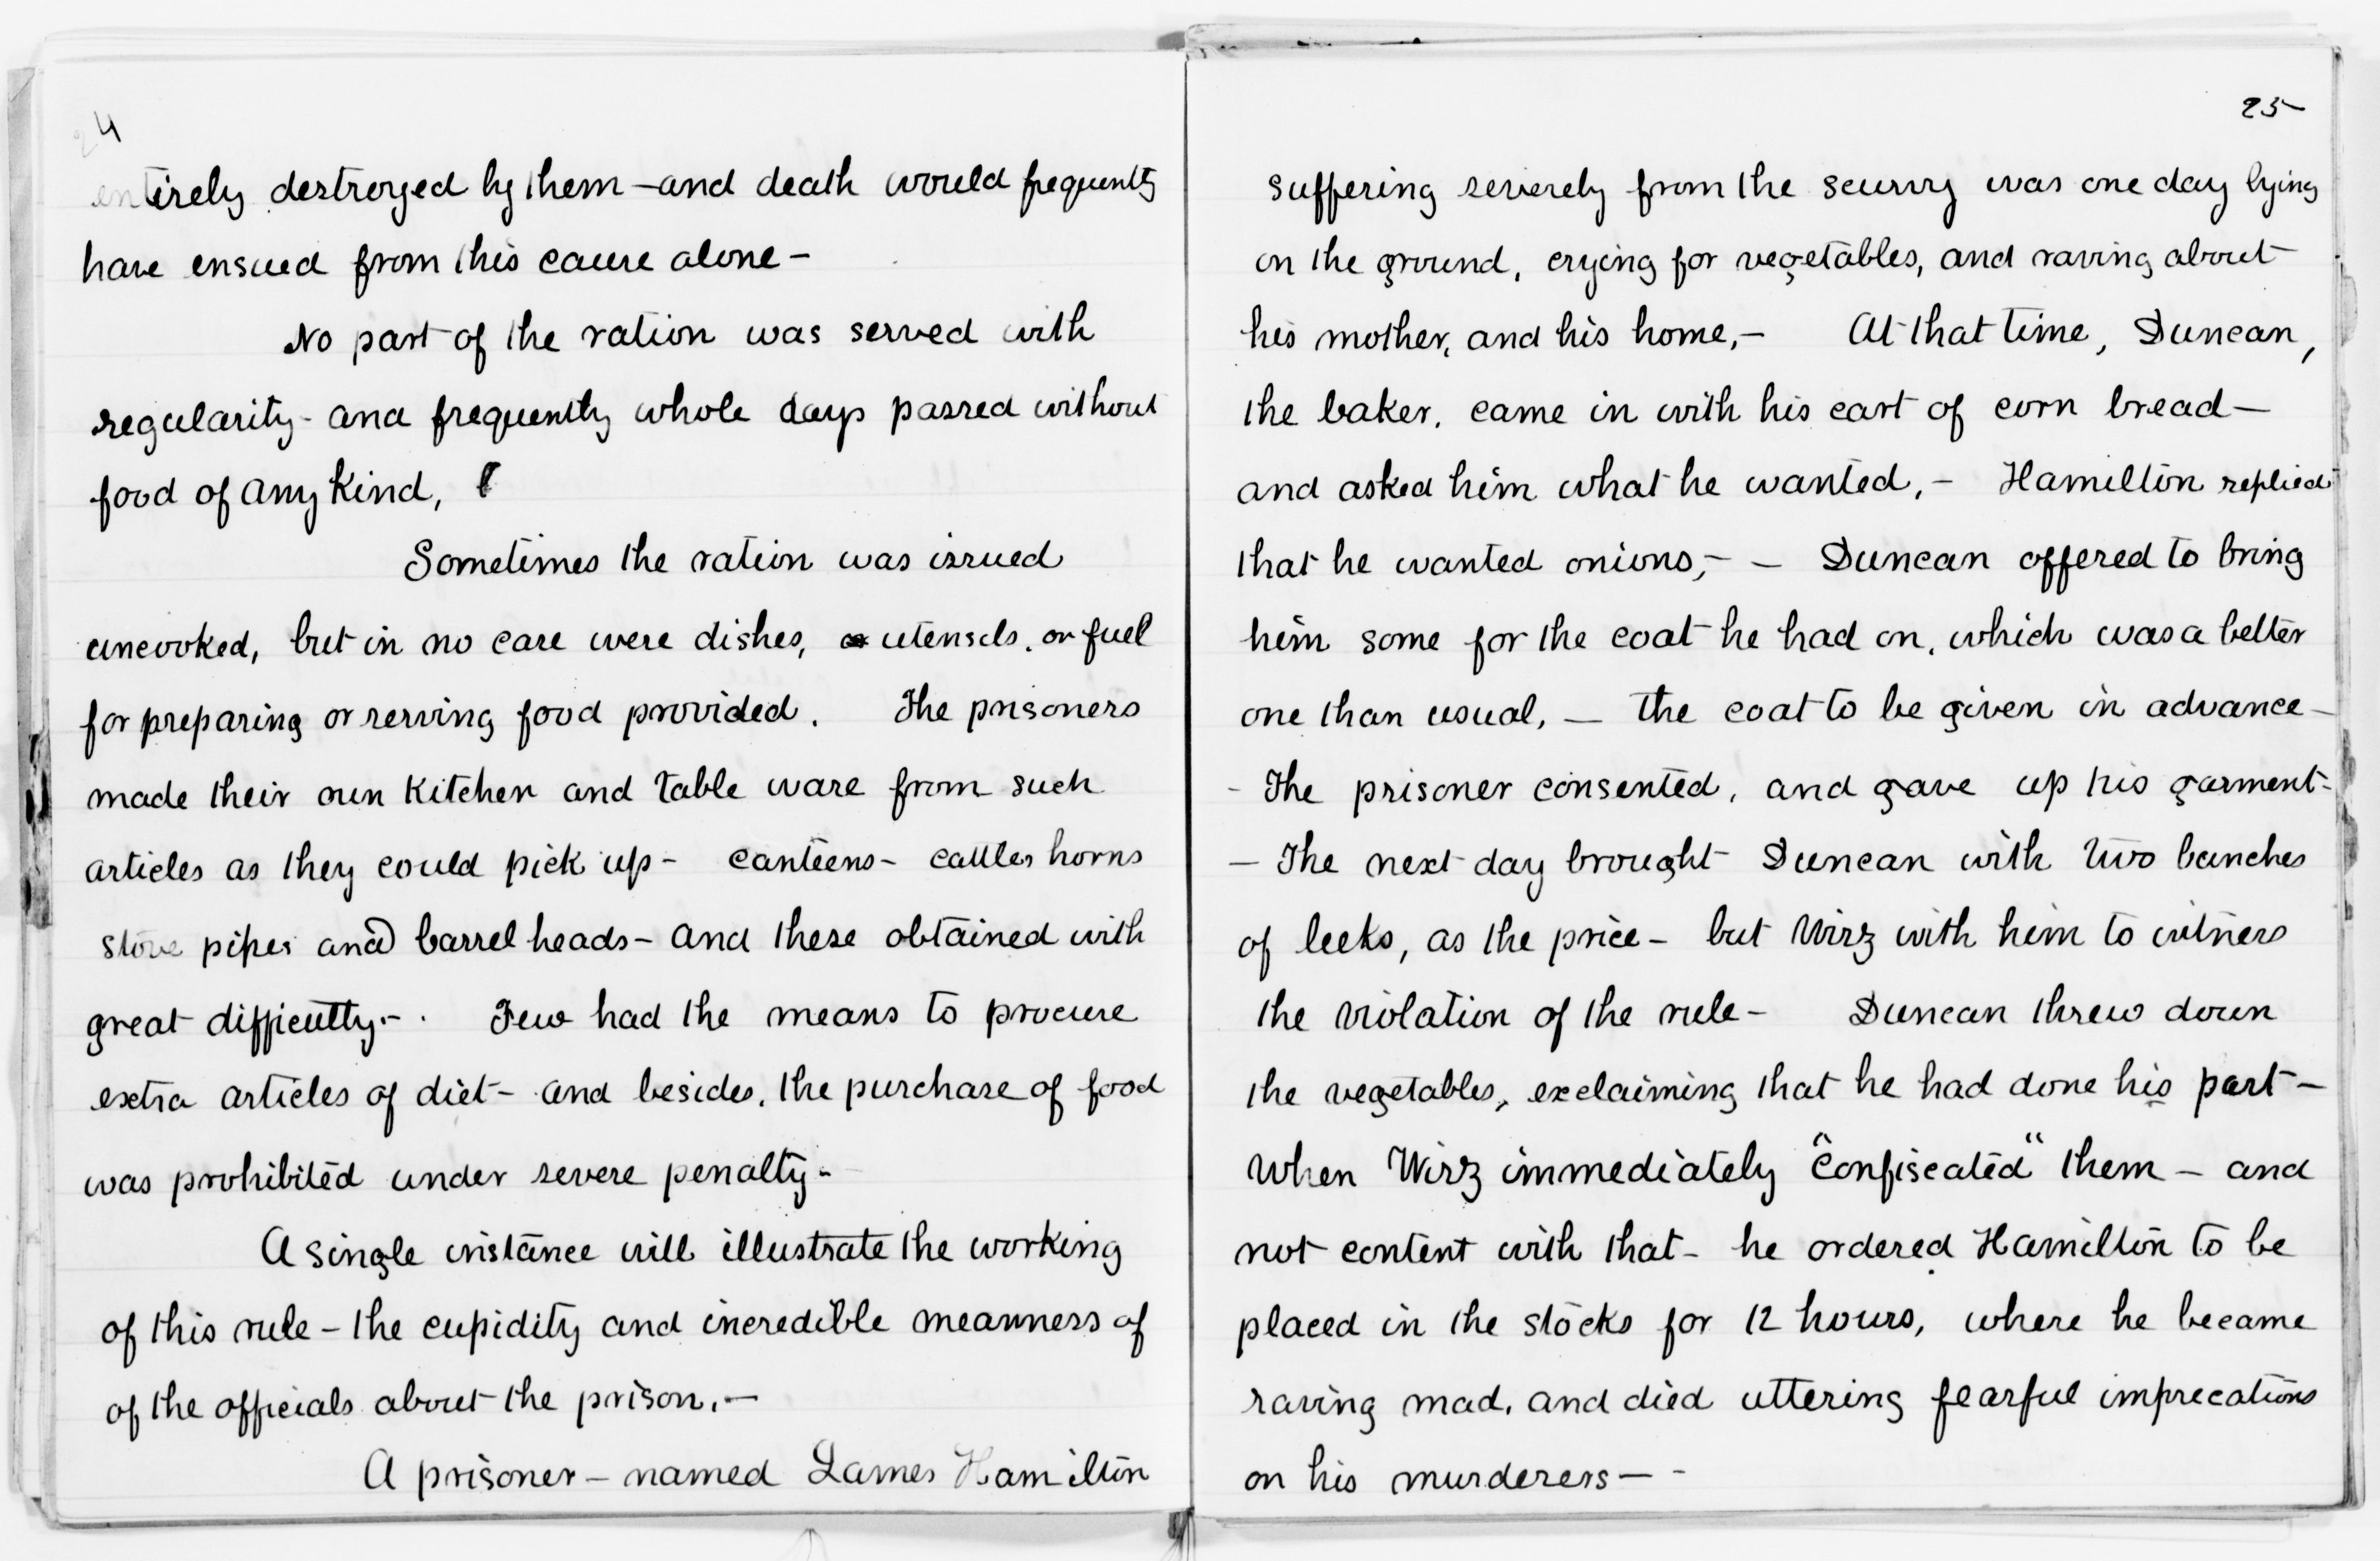 24
entirely destroyed by them — and death would frequently
have ensued from this cause alone —
No part of the ration was served with
regularity - and frequently whole days passed without
food of any kind,
Sometimes the ration was issued
uncooked, but in no case were dishes, utensils, or fuel
for preparing or serving food provided. The prisoners
made their own Kitchen and table ware from such
articles as they could pick up - canteens - cattles horns
stove pipes and barrel heads - and these obtained with
great difficulty - . Few had the means to procure
extra articles of diet - and besides, the purchase of food
was prohibited under severe penalty -
A single instance will illustrate the working
of this rule - the cupidity and incredible meanness of
of the officials about the prison. —
A prisoner — named James Hamilton
25
suffering severely from the scurvy was one day lying
on the ground, crying for vegetables, and raving about
his mother, and his home, — At that time, Duncan,
the baker, came in with his cart of corn bread —
and asked him what he wanted, — Hamilton replied
that he wanted onions, — — Duncan offered to bring
him some for the coat he had on, which was a better
one than usual, — the coat to be given in advance —
- The prisoner consented, and gave up his garment -
— The next day brought Duncan with two bunches
of leeks, as the price - but Wirz with him to witness
the violation of the rule - Duncan threw down
the vegetables, exclaiming that he had done his part —
when Wirz immediately "confiscated" them — and
not content with that - he ordered Hamilton to be
placed in the stocks for 12 hours, where he became
raving mad, and died uttering fearful imprecations
on his murderers — -